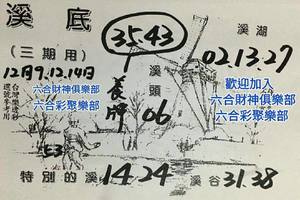 溪底
35.43
溪湖
(三期用)
02.13.27
12月9.12.14日
歡迎加入
六合財神俱樂部
六合彩聚樂部
六合財神俱樂部
六合彩聚樂部
溪頭
06
養牌
63
特別的溪
14.24
溪谷
31.38